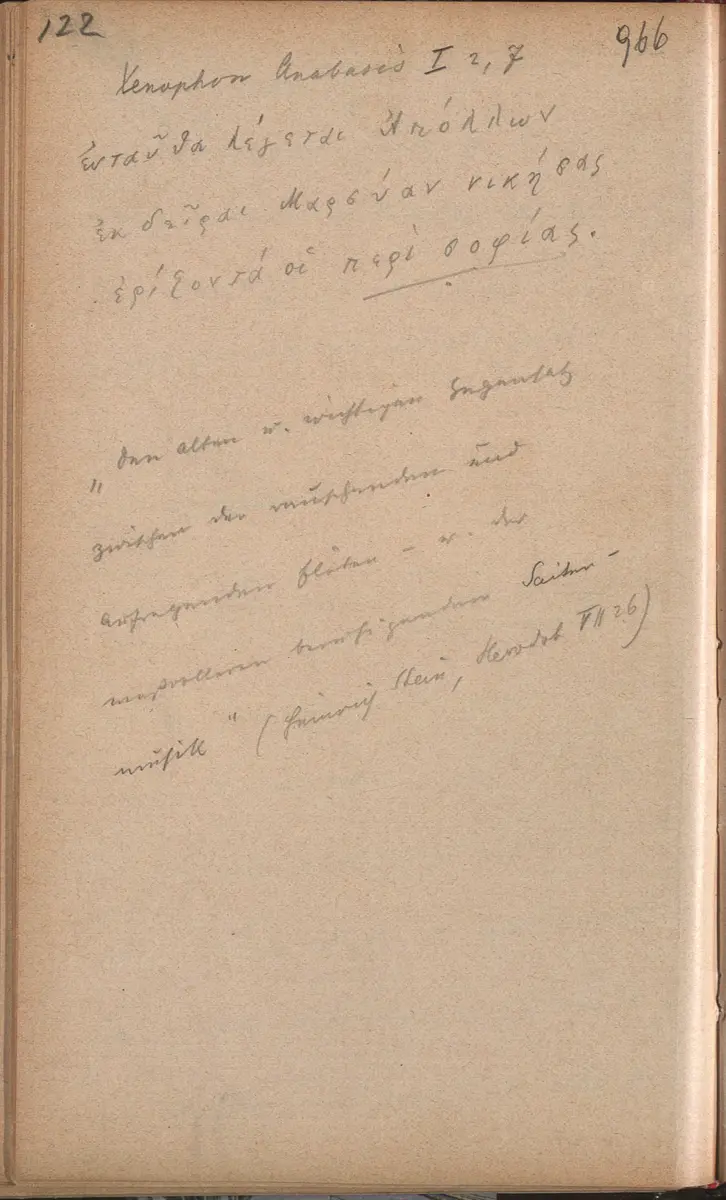 122
966
Xenophon Anabasis I 2, 7
ἐνταῦθα λέγεται Ἀπόλλων
ἐκδεῖραι Μαρσύαν νικήσας
ἐρίζοντά οἱ περὶ σοφίας.
„ den alten u. wichtigen Gegensatz
zwischen der rauschenden und
aufregenden Flöten - u. der
maßvolleren beruhigenden Saiten-
musik " (Heinrich Stein, Herodot VII 26)